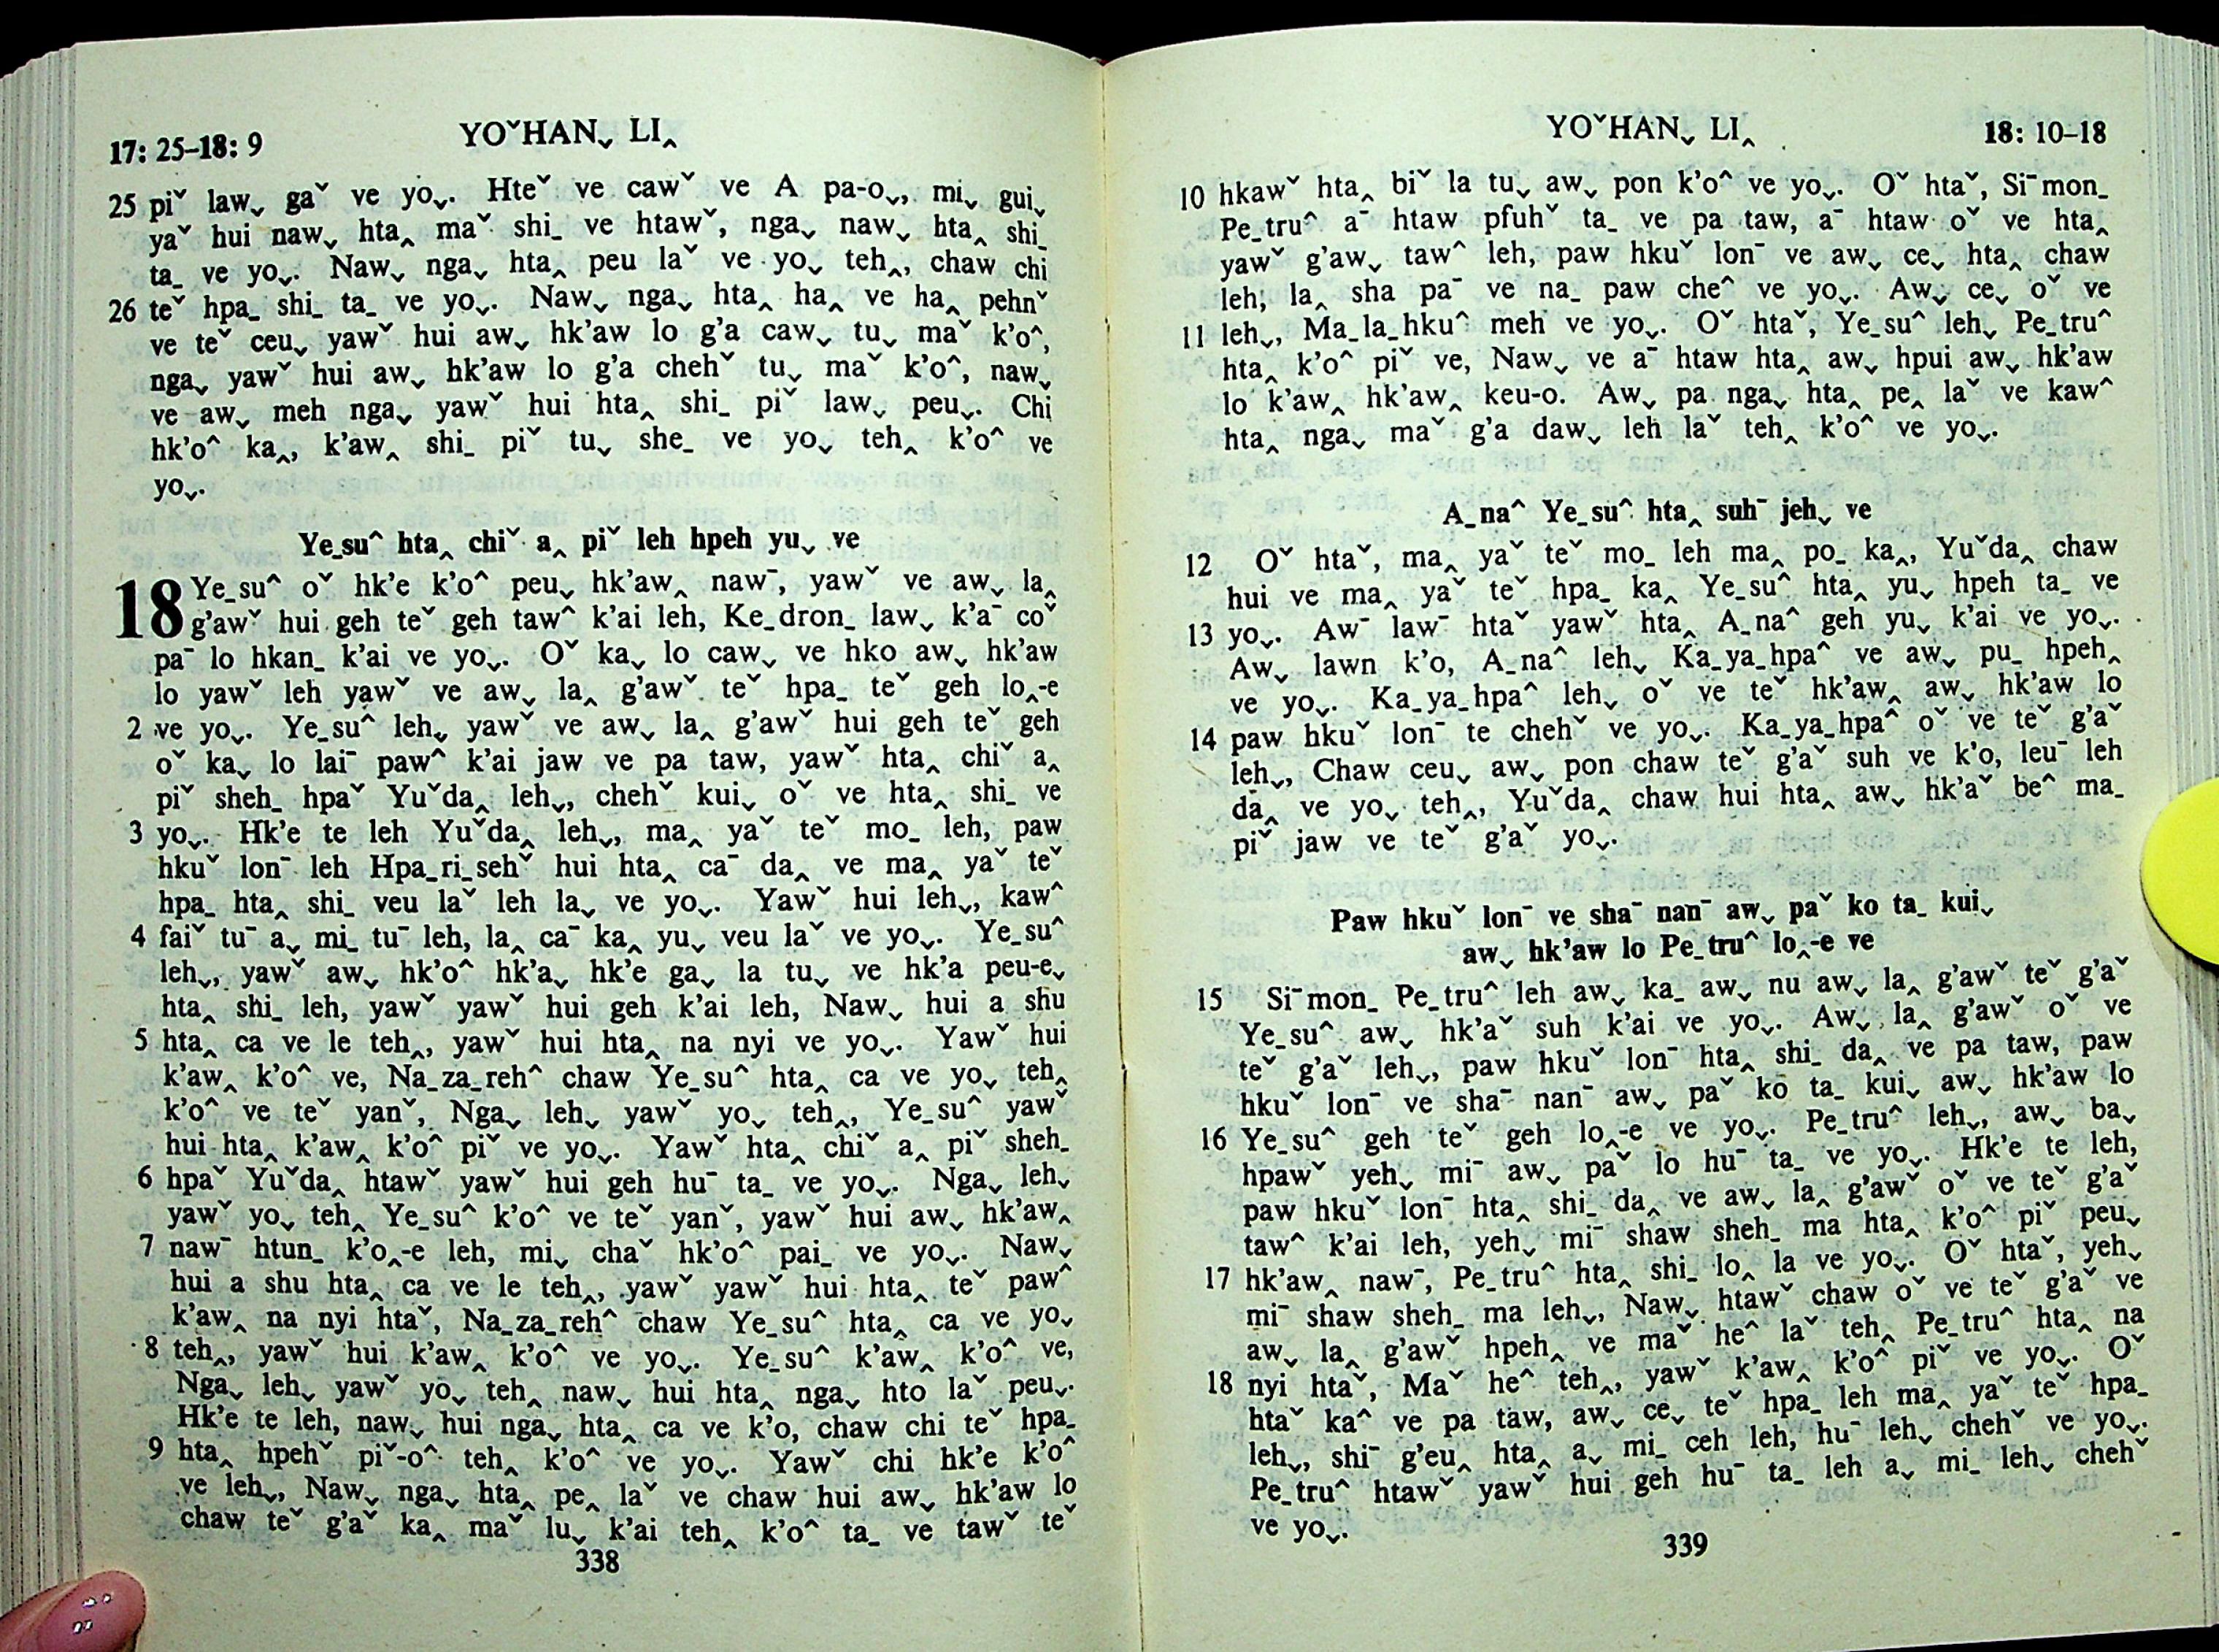 17: 25–18: 9
YOˇHANˬ LI‸
25 piˇ lawˬ gaˇ ve yoˬ. Hteˇ ve cawˇ ve A pa-oˬ, miˬ guiˬ
yaˇ hui nawˬ hta‸ maˇ shi_ ve htawˇ, ngaˬ nawˬ hta‸ shi_
ta_ ve yoˬ. Nawˬ ngaˬ hta‸ peu laˇ ve yoˬ teh‸, chaw chi
26 teˇ hpa_ shi_ ta_ ve yoˬ. Nawˬ ngaˬ hta‸ ha‸ ve ha‸ pehnˇ
ve teˇ ceuˬ yawˇ hui awˬ hk'aw lo g'a cawˬ tuˬ maˇ k'o^,
ngaˬ yawˇ hui awˬ hk'aw lo g'a chehˇ tuˬ maˇ k'o^, nawˬ
ve awˬ meh ngaˬ yawˇ hui hta‸ shi_ piˇ lawˬ peuˬ. Chi
hk'o^ ka‸, k'aw‸ shi_ piˇ tuˬ she_ ve yoˬ teh‸ k'o^ ve
yoˬ.
Ye_su^ hta‸ chiˇ a‸ piˇ leh hpeh yuˬ ve
18 Ye_su^ oˇ hk'e k'o^ peuˬ hk'aw‸ naw¯, yawˇ ve awˬ la‸
g'awˇ hui geh teˇ geh taw^ k'ai leh, Ke_dron_ lawˬ k'a¯ coˇ
pa¯ lo hkan_ k'ai ve yoˬ. Oˇ kaˬ lo cawˬ ve hko awˬ hk'aw
lo yawˇ leh yawˇ ve awˬ la‸ g'awˇ teˇ hpa_ teˇ geh lo‸-e
2 ve yoˬ. Ye_su^ lehˬ yawˇ ve awˬ la‸ g'awˇ hui geh teˇ geh
oˇ kaˬ lo lai¯ paw^ k'ai jaw ve pa taw, yawˇ hta‸ chiˇ a‸
piˇ sheh_ hpaˇ Yuˇda‸ lehˬ, chehˇ kuiˬ oˇ ve hta‸ shi_ ve
3 yoˬ. Hk'e te leh Yuˇda‸ lehˬ, ma‸ yaˇ teˇ mo_ leh, paw
hkuˇ lon¯ leh Hpa_ri_sehˇ hui hta‸ ca¯ da‸ ve ma‸ yaˇ teˇ
hpa_ hta‸ shi_ veu laˇ leh laˬ ve yoˬ. Yawˇ hui lehˬ, kaw^
4 faiˇ tu¯ aˬ mi_ tu¯ leh, la‸ ca¯ ka‸ yuˬ veu laˇ ve yoˬ. Ye_su^
lehˬ, yawˇ awˬ hk'o^ hk'aˬ hk'e gaˬ la tuˬ ve hk'a peu-eˬ
hta‸ shi_ leh, yawˇ yawˇ hui geh k'ai leh, Nawˬ hui a shu
5 hta‸ ca ve le teh‸, yawˇ hui hta‸ na nyi ve yoˬ. Yawˇ hui
k'aw‸ k'o^ ve, Na_za_reh^ chaw Ye_su^ hta‸ ca ve yoˬ teh‸
k'o^ ve teˇ yanˇ, Ngaˬ lehˬ yawˇ yoˬ teh‸, Ye_su^ yawˇ
hui hta‸ k'aw‸ k'o^ piˇ ve yoˬ. Yawˇ hta‸ chiˇ a‸ piˇ sheh_
6 hpaˇ Yuˇda‸ htawˇ yawˇ hui geh hu¯ ta_ ve yoˬ. Ngaˬ lehˬ
yawˇ yoˬ teh‸ Ye_su^ k'o^ ve teˇ yanˇ, yawˇ hui awˬ hk'aw‸
7 naw¯ htun_ k'o‸-e leh, miˬ chaˇ hk'o^ pai_ ve yoˬ. Nawˬ
hui a shu hta‸ ca ve le teh‸, yawˇ yawˇ hui hta‸ teˇ paw^
k'aw‸ na nyi htaˇ, Na_za_reh^ chaw Ye_su^ hta‸ ca ve yoˬ
8 teh‸, yawˇ hui k'aw‸ k'o^ ve yoˬ. Ye_su^ k'aw‸ k'o^ ve,
Ngaˬ lehˬ yawˇ yoˬ teh‸ nawˬ hui hta‸ ngaˬ hto laˇ peuˬ.
Hk'e te leh, nawˬ hui ngaˬ hta‸ ca ve k'o, chaw chi teˇ hpa_
9 hta‸ hpehˇ piˇ-o^ teh‸ k'o^ ve yoˬ. Yawˇ chi hk'e k'o^
ve lehˬ, Nawˬ ngaˬ hta‸ pe‸ laˇ ve chaw hui awˬ hk'aw lo
chaw teˇ g'aˇ ka‸ maˇ luˬ k'ai teh‸ k'o^ ta_ ve tawˇ teˇ
338
YOˇHANˬ LI‸
18: 10–18
10 hkawˇ hta‸ biˇ la tuˬ awˬ pon k'o^ ve yoˬ. Oˇ htaˇ, Si¯mon_
Pe_tru^ a¯ htaw pfuhˇ ta_ ve pa taw, a¯ htaw oˇ ve hta‸
yawˇ g'awˬ taw^ leh, paw hkuˇ lon¯ ve awˬ ceˬ hta‸ chaw
leh, la‸ sha pa¯ ve na_ paw che^ ve yoˬ. Awˬ ceˬ oˇ ve
11 lehˬ, Ma_la_hku^ meh ve yoˬ. Oˇ htaˇ, Ye_su^ lehˬ Pe_tru^
hta‸ k'o^ piˇ ve, Nawˬ ve a¯ htaw hta‸ awˬ hpui awˬ hk'aw
lo k'aw‸ hk'aw‸ keu-o. Awˬ pa ngaˬ hta‸ pe‸ laˇ ve kaw^
hta‸ ngaˬ maˇ g'a dawˬ leh laˇ teh‸ k'o^ ve yoˬ.
A_na^ Ye_su^ hta‸ suh¯ jehˬ ve
12 Oˇ htaˇ, ma‸ yaˇ teˇ mo_ leh ma‸ po_ ka‸, Yuˇda‸ chaw
hui ve ma‸ yaˇ teˇ hpa_ ka‸ Ye_su^ hta‸ yuˬ hpeh ta_ ve
13 yoˬ. Aw¯ law¯ htaˇ yawˇ hta‸ A_na^ geh yuˬ k'ai ve yoˬ.
Awˬ lawn k'o, A_na^ lehˬ Ka_ya_hpa^ ve awˬ pu_ hpeh‸
ve yoˬ. Ka_ya_hpa^ lehˬ oˇ ve teˇ hk'aw‸ awˬ hk'aw lo
14 paw hkuˇ lon¯ te chehˇ ve yoˬ. Ka_ya_hpa^ oˇ ve teˇ g'aˇ
lehˬ, Chaw ceuˬ awˬ pon chaw teˇ g'aˇ suh ve k'o, leu¯ leh
da‸ ve yoˬ teh‸, Yuˇda‸ chaw hui hta‸ awˬ hk'aˇ be^ ma_
piˇ jaw ve teˇ g'aˇ yoˬ.
Paw hkuˇ lon¯ ve sha¯ nan¯ awˬ paˇ ko ta_ kuiˬ
awˬ hk'aw lo Pe_tru^ lo‸-e ve
15 Si¯mon_ Pe_tru^ leh awˬ ka_ awˬ nu awˬ la‸ g'awˇ teˇ g'aˇ
Ye_su^ awˬ hk'aˇ suh k'ai ve yoˬ. Awˬ la‸ g'awˇ oˇ ve
teˇ g'aˇ lehˬ, paw hkuˇ lon¯ hta‸ shi_ da‸ ve pa taw, paw
hkuˇ lon¯ ve sha¯ nan¯ awˬ paˇ ko ta_ kuiˬ awˬ hk'aw lo
16 Ye_su^ geh teˇ geh lo‸-e ve yoˬ. Pe_tru^ lehˬ, awˬ baˬ
hpawˇ yehˬ mi¯ awˬ paˇ lo hu¯ ta_ ve yoˬ. Hk'e te leh,
paw hkuˇ lon¯ hta‸ shi_ da‸ ve awˬ la‸ g'awˇ oˇ ve teˇ g'aˇ
taw^ k'ai leh, yehˬ mi¯ shaw sheh_ ma hta‸ k'o^ piˇ peuˬ
17 hk'aw‸ naw¯, Pe_tru^ hta‸ shi_ lo‸ la ve yoˬ. Oˇ htaˇ, yehˬ
mi¯ shaw sheh_ ma lehˬ, Nawˬ htawˇ chaw oˇ ve teˇ g'aˇ ve
awˬ la‸ g'awˇ hpeh‸ ve maˇ he^ laˇ teh‸ Pe_tru^ hta‸ na
18 nyi htaˇ, Maˇ he^ teh‸, yawˇ k'aw‸ k'o^ piˇ ve yoˬ. Oˇ
htaˇ ka^ ve pa taw, awˬ ceˬ teˇ hpa_ leh ma‸ yaˇ teˇ hpa_
lehˬ, shi¯ g'eu‸ hta‸ aˬ mi_ ceh leh, hu¯ lehˬ chehˇ ve yoˬ.
Pe_tru^ htawˇ yawˇ hui geh hu¯ ta_ leh aˬ mi_ lehˬ chehˇ
ve yoˬ.
339